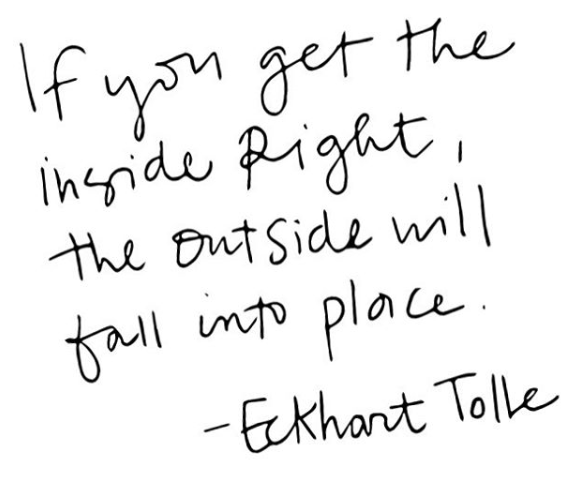 If you get the
inside Right,
the outside will
fall into place.
-Eckhart Tolle